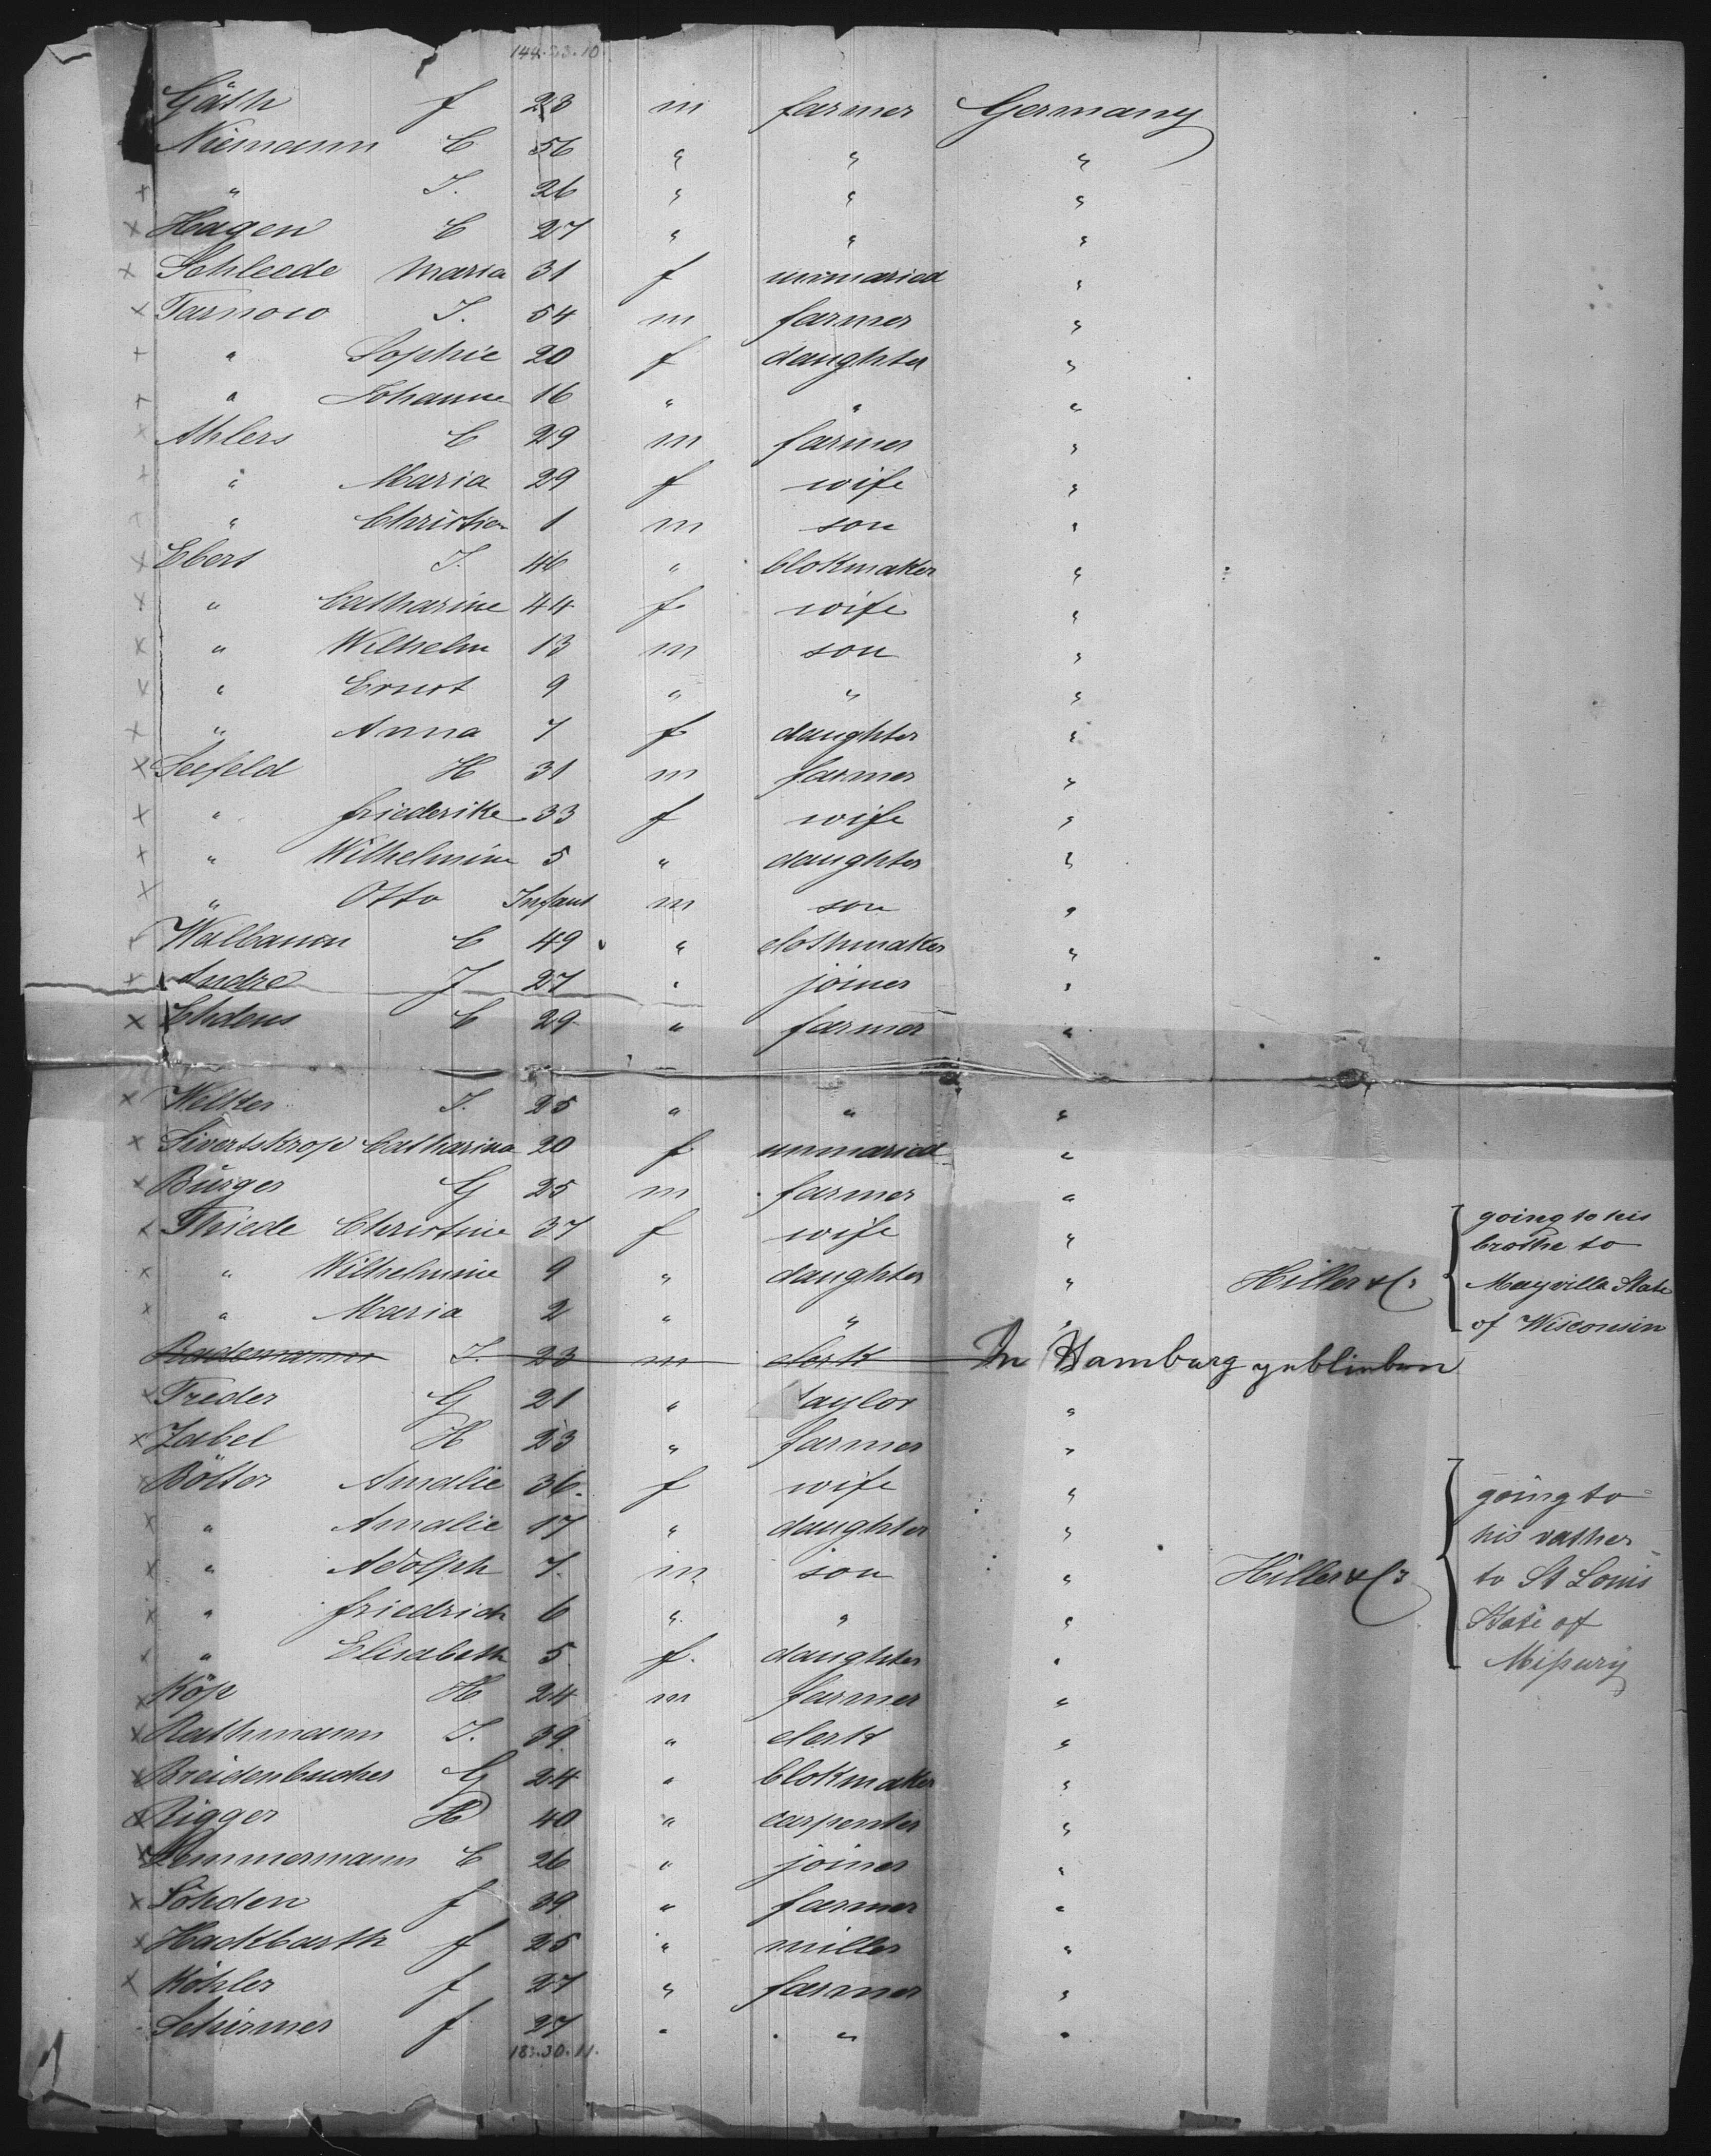 144.33.10
Gäth f 23 m farmer Germany
Niemann C 56 " " "
" J. 26 " " "
Hagen C 27 " " "
Schleede Maria 31 f unmaried "
Tarnow J. 54 m farmer "
" Sophie 20 f daughter "
" Johanne 16 " " "
Ahlers C 29 m farmer "
" Maria 29 f wife "
" Christian 1 m son "
Ebert J. 46 " blokmaker "
" Catharine 44 f wife "
" Wilhelm 13 m son "
" Ernst 9 " " "
" Anna 7 f daughter "
Seefeld H 31 m farmer "
" friederike 33 f wife "
" Wilhelmine 5 " daughter "
" Otto Infant m son "
Walbaum C 49 " clothmaker "
Andre J 27 " joiner "
C 29 " farmer "
Welker J. 25 " " "
Sivertskrop Catharina 20 f unmaried "
Bürger G 25 m farmer "
Thiede Christine 37 f wife " going to his
" Wilhelmine 9 " daughter " Hiller & Co brothe to
" Maria 2 " " " Mayville State
of Wisconsin
Rademann J. 23 m clerk In Hamburg geblieben
Treder G 21 " taylor "
Zabel H 23 " farmer "
Bölter Amalie 36 f wife " going to
" Amalie 17 " daughter " his vather
" Adolph 7 m son " Hiller & Co to St Louis
" friedrich 6 " " " State of
" Elisabeth 5 f daughter " Mißury
Köp H 24 m farmer "
Rathmann J. 39 " clerk "
Breidenbucher G 24 " blokmaker "
Rigger H 40 " carpenter "
Lemmermann C 26 " joiner "
Söhden f 39 " farmer "
Hackbarth f 25 " miller "
Köhler f 27 " farmer "
Schirmer f 27 " " "
183.30.11.